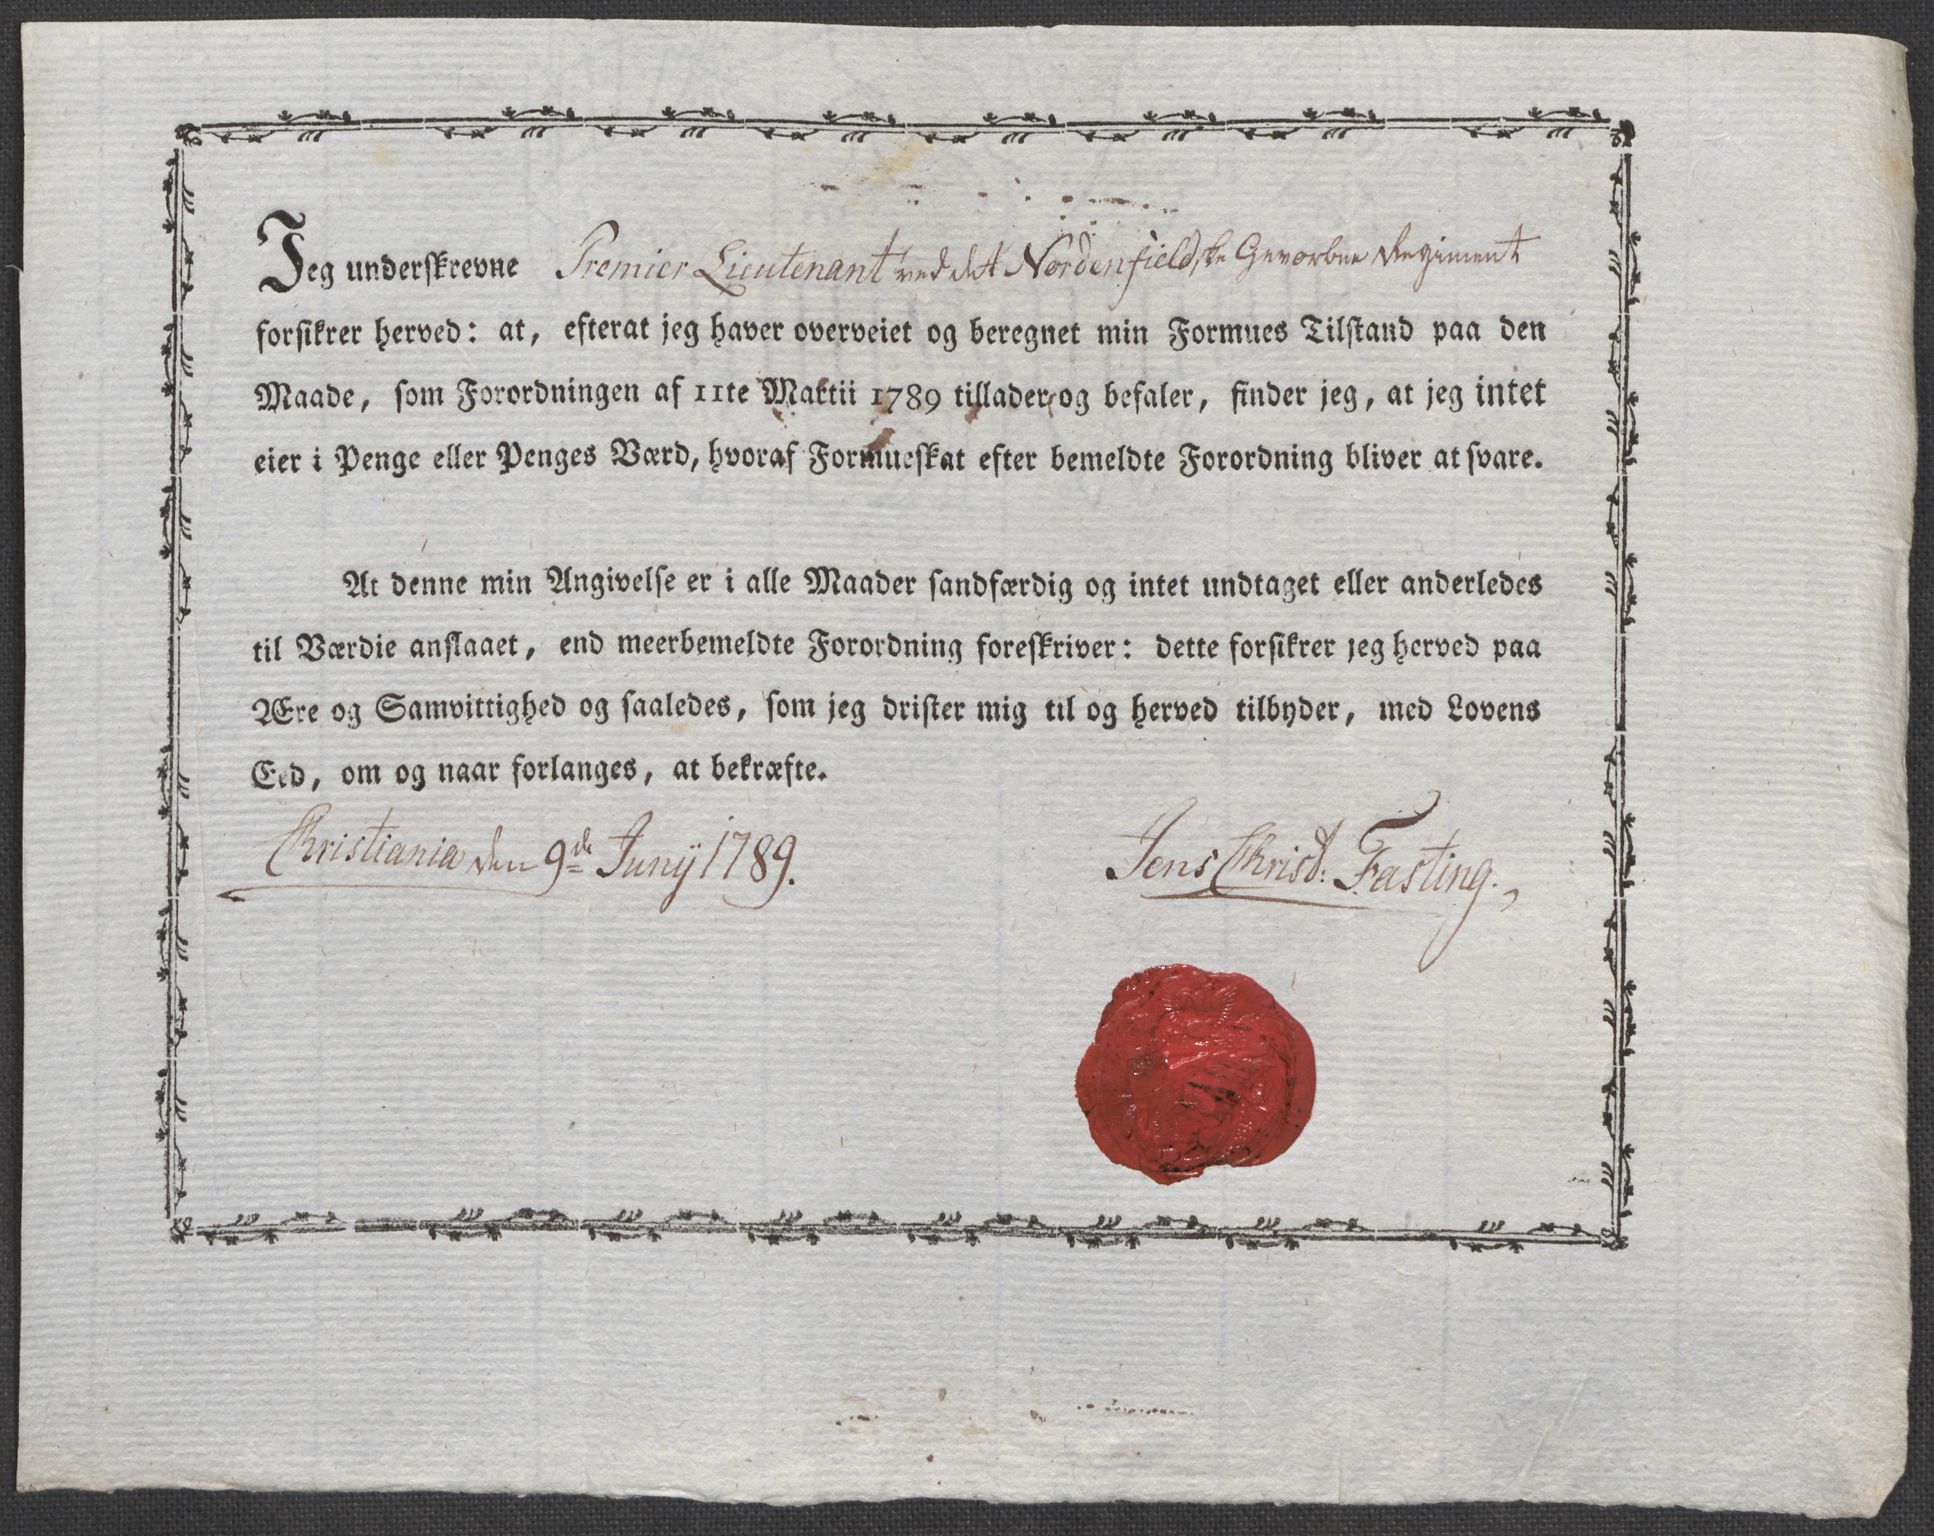 Jeg underskrevne Premier Lieutenant ved det Nordenfieldske Gevorbne Regiment
forsikrer herved: at, efterat jeg haver overveiet og beregnet min Formues Tilstand paa den
Maade, som Forordningen af 11te Martii 1789 tillader og befaler, finder jeg, at jeg intet
eier i Penge eller Penges Værd, hvoraf Formueskat efter bemeldte Forordning bliver at svare.
At denne min Angivelse er i alle Maader sandfærdig og intet undtaget eller anderledes
til Værdie anslaaet, end meerbemeldte Forordning foreskriver: dette forsikrer jeg herved paa
Ære og Samvittighed og saaledes, som jeg drister mig til og herved tilbyder, med Lovens
Eed, om og naar forlanges, at bekræfte.
Christiania den 9de Junij 1789.
Jens Christ: Fasting.